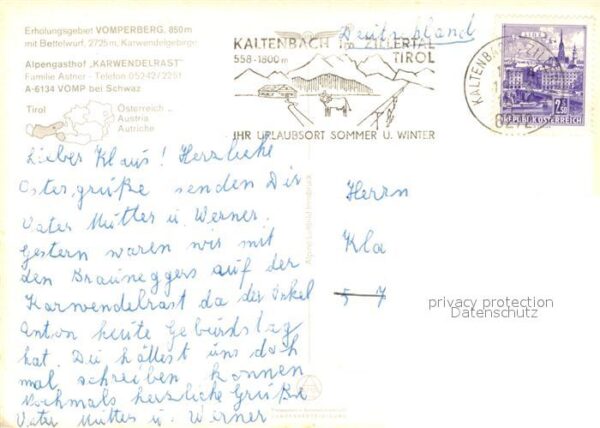 Erholungsgebiet VOMPERBERG, 850 m
mit Bettelwurf, 2725 m, Karwendelgebirge
Alpengasthof „KARWENDELRAST"
Familie Astner - Telefon 05242/2251
A-6134 VOMP bei Schwaz
Tirol
Österreich
Austria
Autriche
Deutschland
KALTENBACH IM ZILLERTAL
558-1800 m TIROL
IHR URLAUBSORT SOMMER U. WINTER
KALTENBACH
LINZ
2.50
REPUBLIK ÖSTERREICH
Lieber Klaus! Herzliche
Ostergrüße senden Dir
Vater Mutter u. Werner.
Gestern waren wir mit
den Brauneggers auf der
Karwendelrast da der Onkel
Anton heute Geburdstag
hat. Du hättest uns doch
mal schreiben können
Nochmals herzliche Grüße
Vater Mutter u. Werner
Herrn
Kla
5 7
privacy protection
Datenschutz